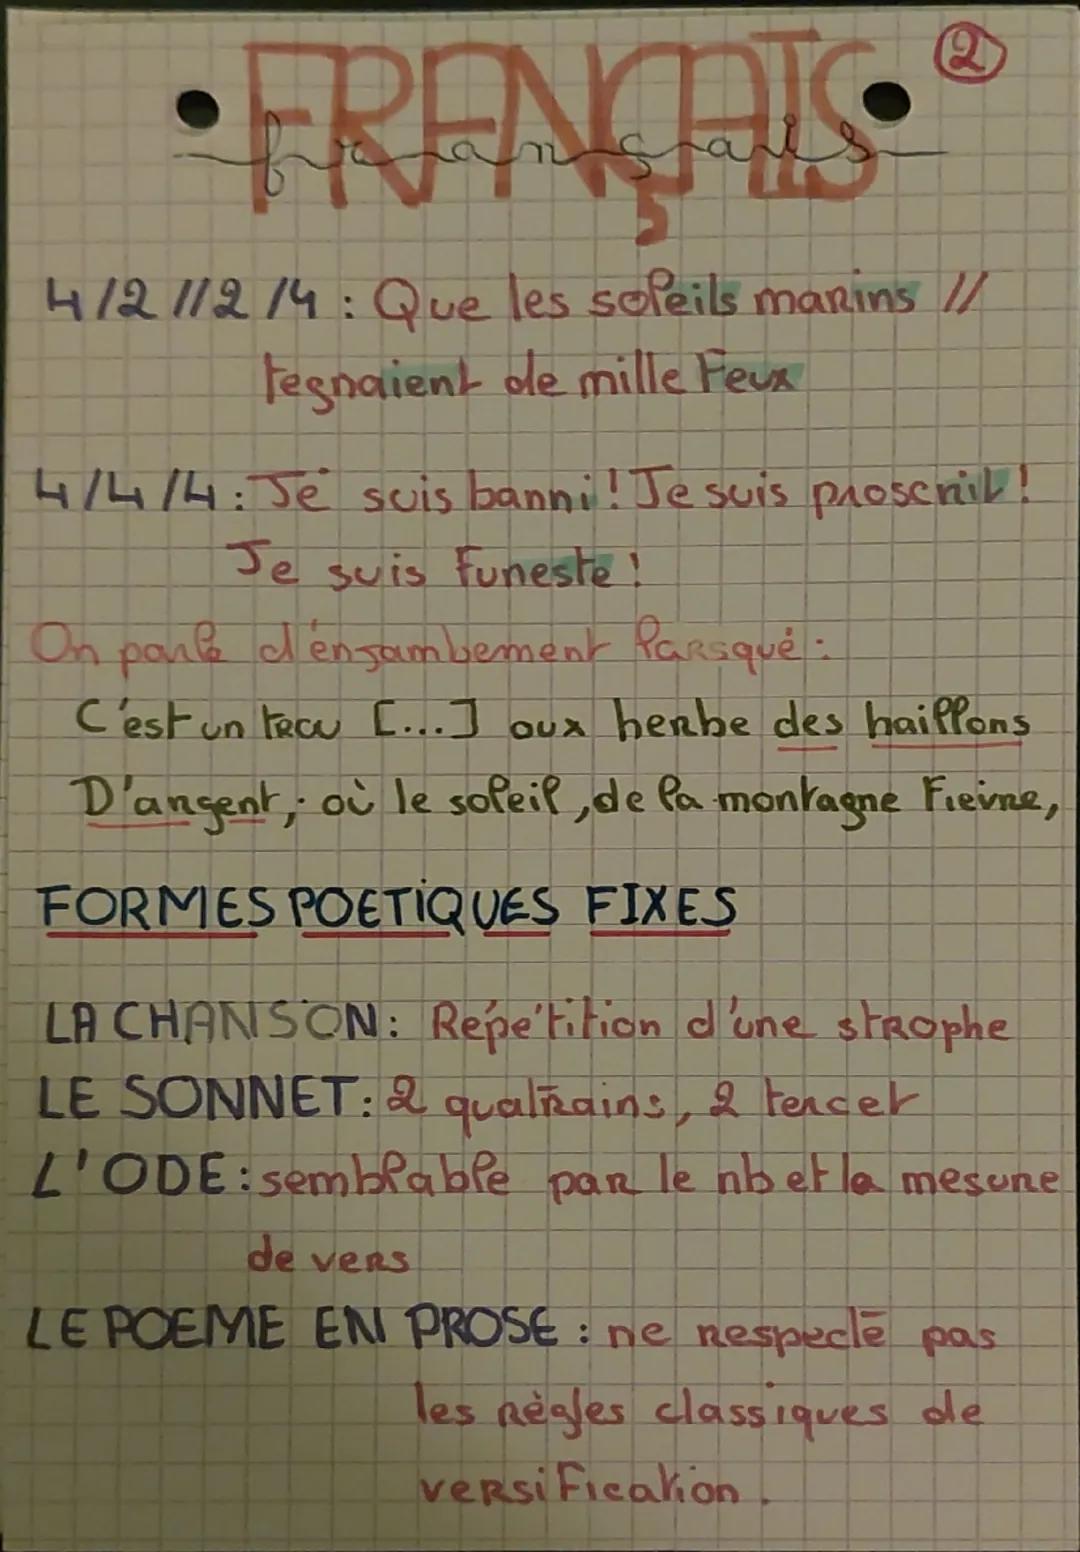 2
FRANÇAIS
français
4/2//2/4 : Que les soleils marins //
tegnaient de mille Feux
4/4/4 : Je suis banni ! Je suis proscrit !
Je suis Funeste !
On parle d'enjambement larsqué :
C'est un trou [...] aux herbe des haillons
D'argent ; où le soleil, de la montagne Fieire,
FORMES POETIQUES FIXES
LA CHANSON : Répétition d'une strophe
LE SONNET : 2 quatrains, 2 tercet
L'ODE : semblable par le nb et la mesure
de vers
LE POEME EN PROSE : ne respecte pas
les règles classiques de
versification.